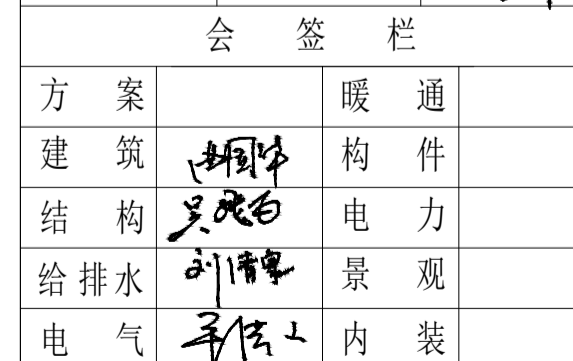 会 签 栏
方 案 暖 通
建 筑 构 件
结 构 电 力
给排水 刘 景 观
电 气 内 装